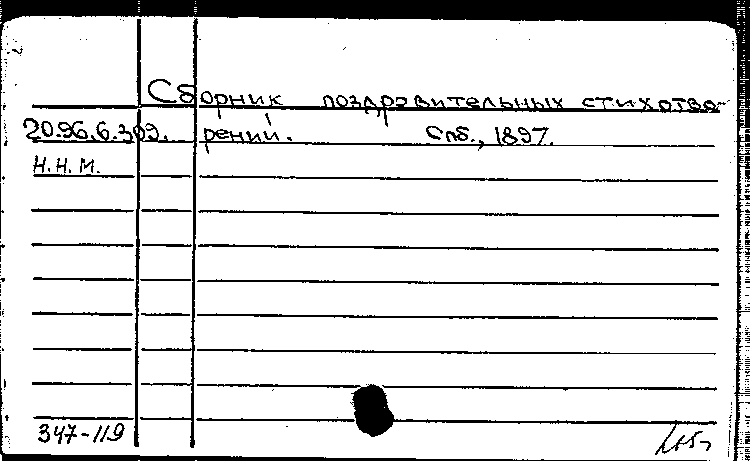 Сборник поздравительных стихотво-
20.96.6.309. рений. Спб., 1897.
Н.Н.М.
347-119